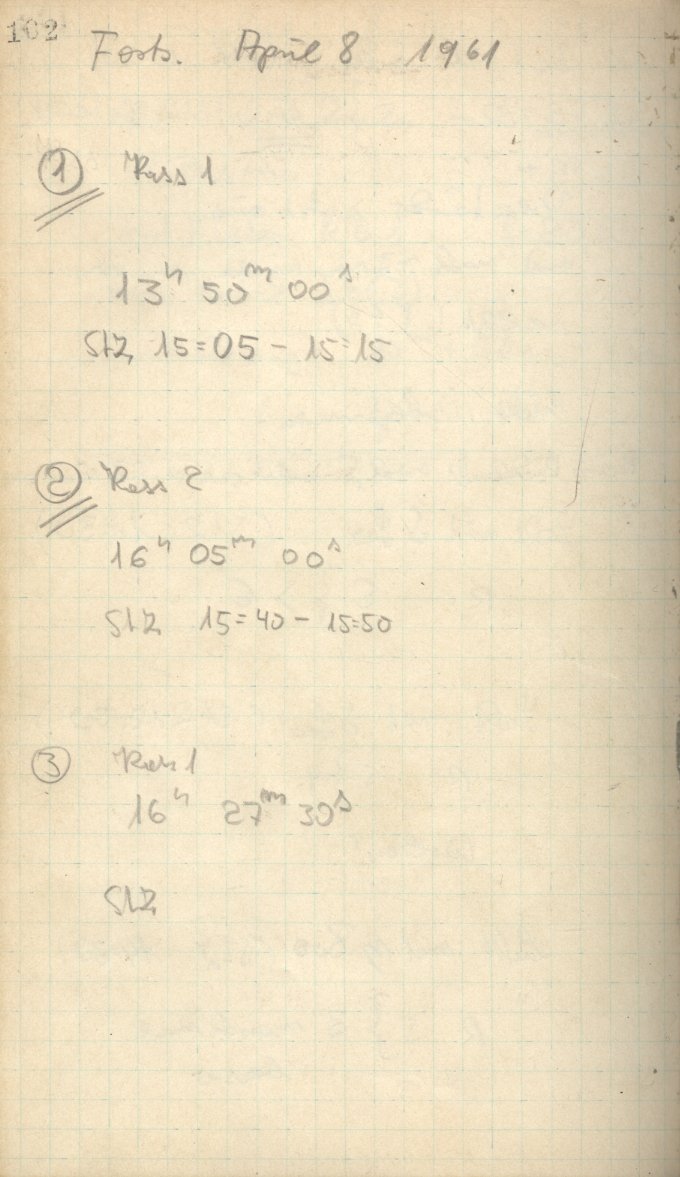 102
Forts. April 8 1961
① Kass 1
13ʰ 50ᵐ 00ˢ
StZ 15=05 - 15=15
② Kass 2
16ʰ 05ᵐ 00ˢ
StZ 15=40 - 15=50
③ Kass 1
16ʰ 27ᵐ 30ˢ
StZ